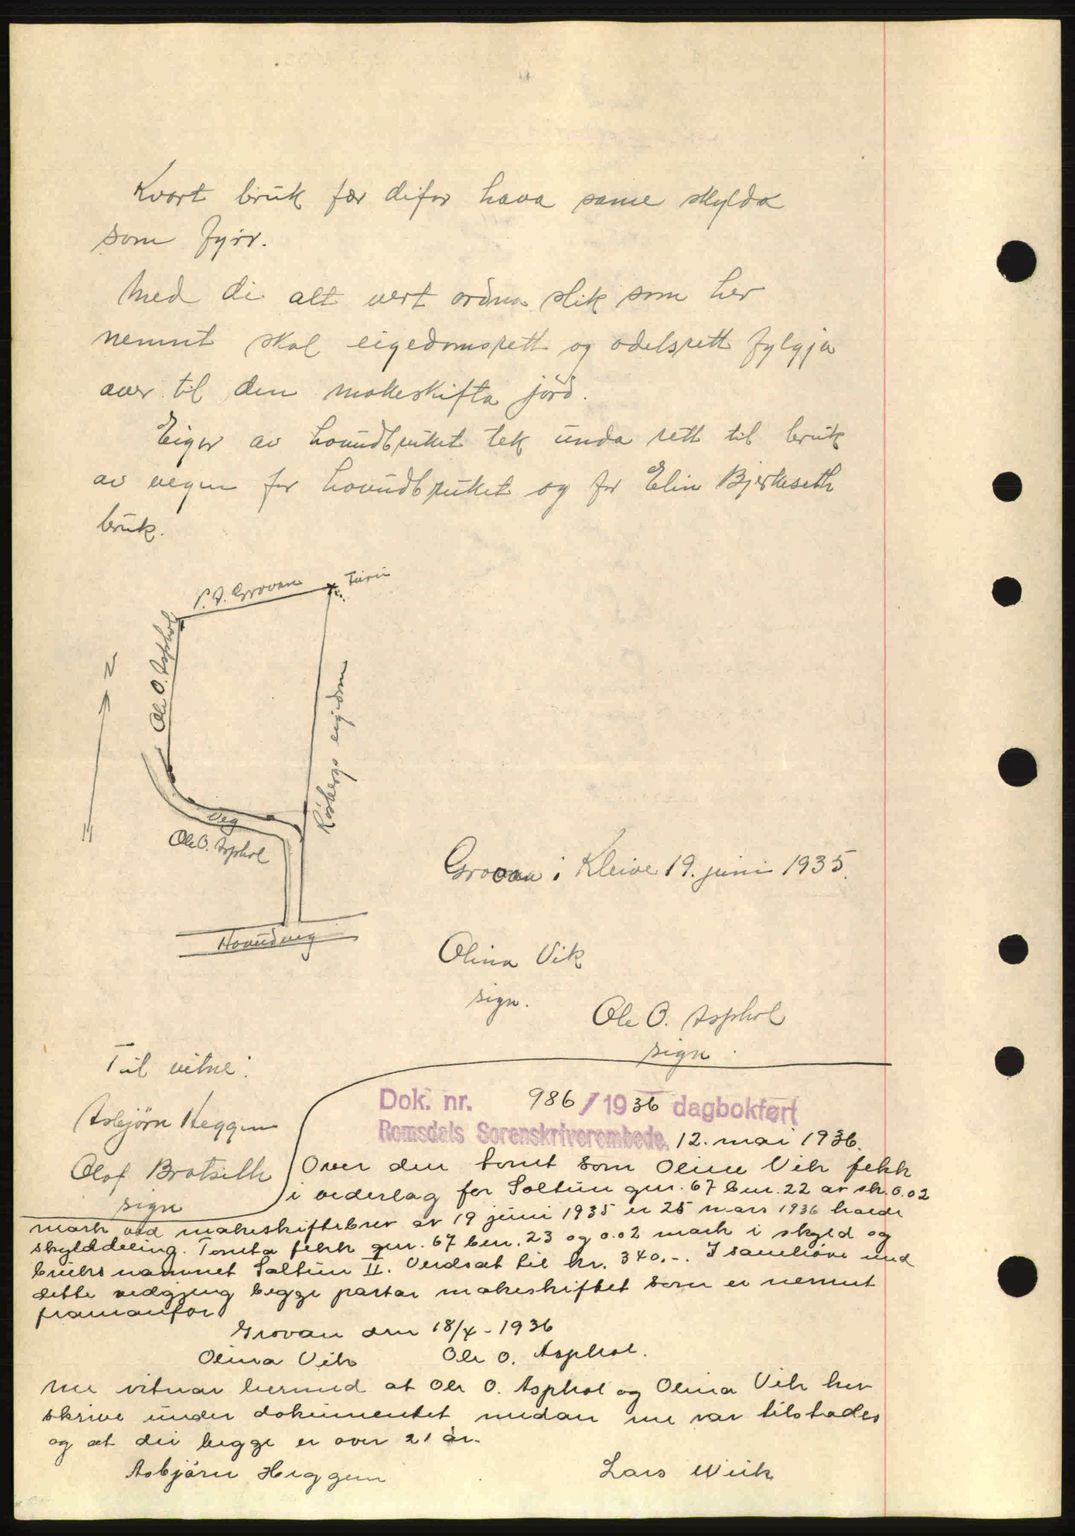 Kvart bruk fær difor hava same skylda
som fyrr.
Med di alt vert ordna slik som her
nemnt skal eigedomsrett og odelsrett fylgja
over til den makeskifta jord.
Eigar av hovudbruket tek unda rett til bruk
av vegen for hovudbruket og for Elin Bjerkeseth
bruk.
P. A. Grovan
Ole O. Asphol
N
Røsbergs eigedom
Veg
Ole O. Asphol
Hovudveg
Grovan i Kleive 19. juni 1935.
Olina Vik
sign.
Ole O. Asphol
sign.
Til vitne:
Asbjørn Heggem
Olaf Bratseth
sign
Dok. nr. 986/1936 dagbokført
Romsdals Sorenskriverembede, 12. mai 1936.
Over den tomt som Olina Vik fekk
i vederlag for Soltun gnr. 67 bnr. 22 av sk. 0.02
mark ved makeskiftebrev av 19 juni 1935 er 25 mars 1936 havde
skylddeling. Tomta fekk gnr. 67 bnr. 23 og 0.02 mark i skyld og
bruksnamnet Soltun II. Verdsat til kr. 340.-. I samhøve med
dette vedgjeng begge partar makeskiftet som er nemnt
framanfor
Grovan den 18/4-1936
Olina Vik Ole O. Asphol.
Me vitnar hermed at Ole O. Asphol og Olina Vik hev
skrive under dokumentet medan me var tilstades
og at dei begge er over 21 år.
Asbjørn Heggem Lars Wiik